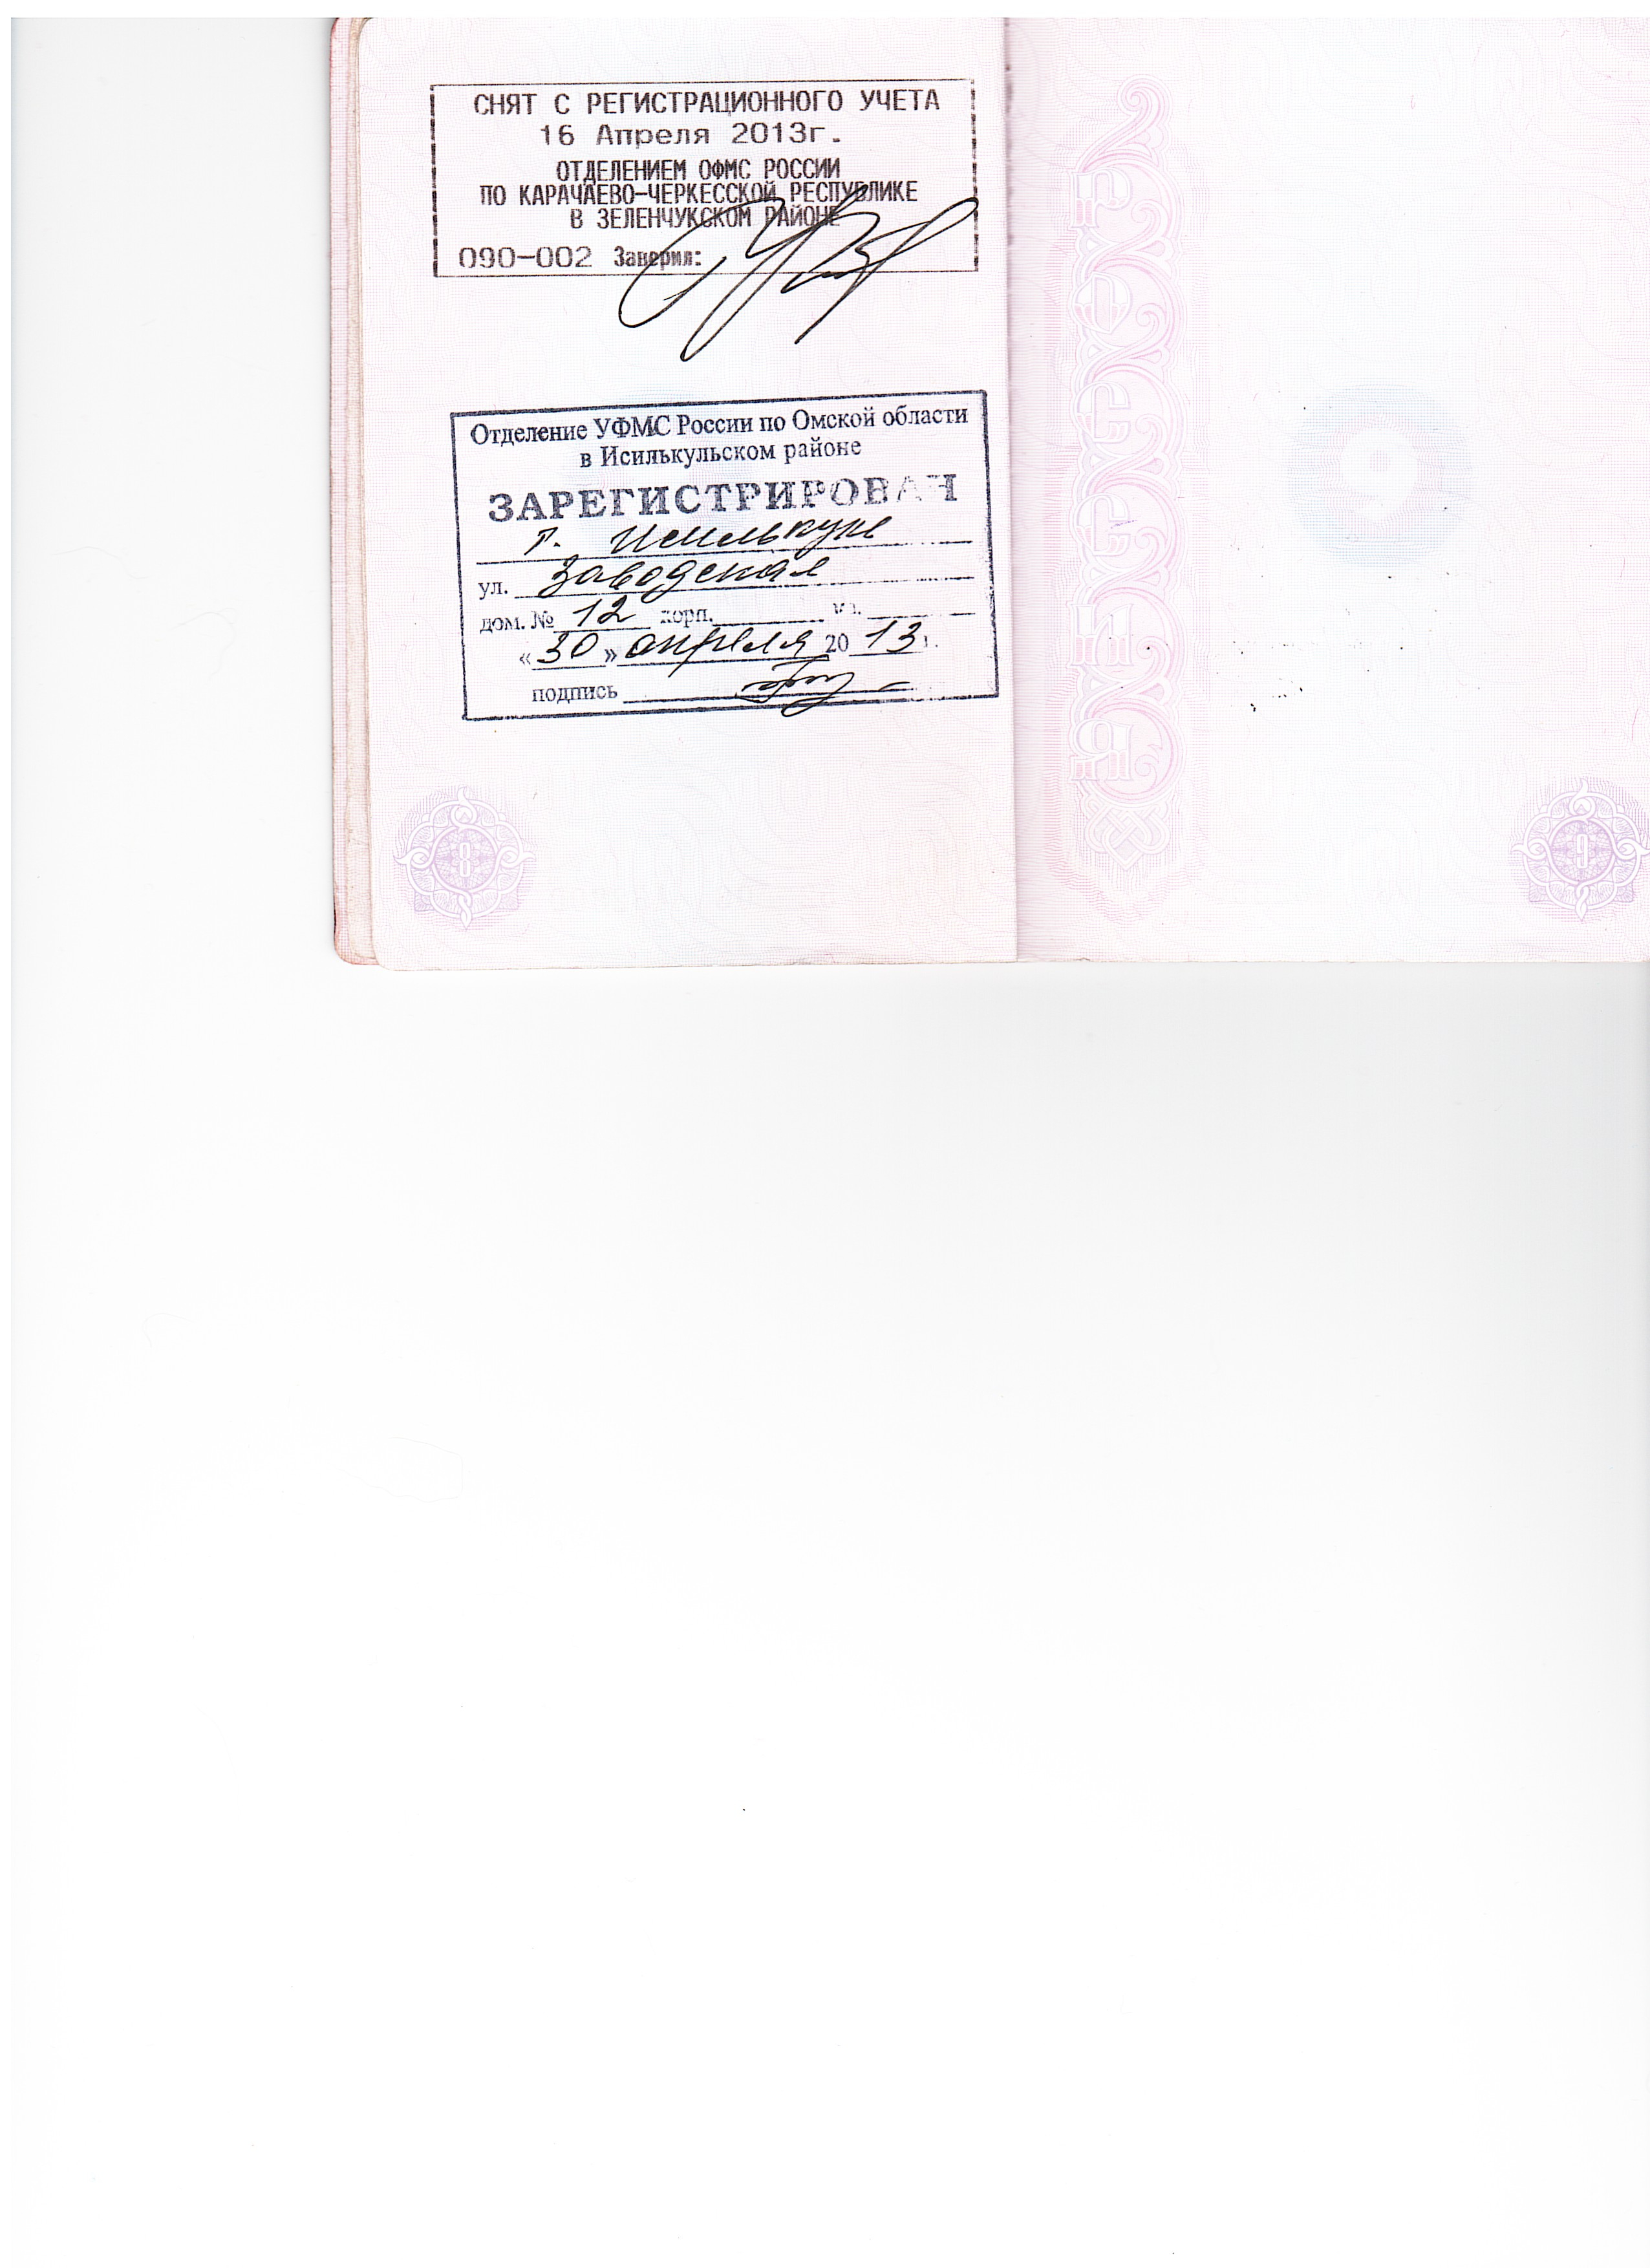 СНЯТ С РЕГИСТРАЦИОННОГО УЧЕТА
16 Апреля 2013г.
ОТДЕЛЕНИЕМ ОФМС РОССИИ
ПО КАРАЧАЕВО-ЧЕРКЕССКОЙ РЕСПУБЛИКЕ
В ЗЕЛЕНЧУКСКОМ РАЙОНЕ
090-002 Заверил:
Отделение УФМС России по Омской области
в Исилькульском районе
ЗАРЕГИСТРИРОВАН
г. Исилькуль
ул. Заводская
дом. № 12 корп.
«30» апреля 2013г.
подпись
РОССИЯ
8
9